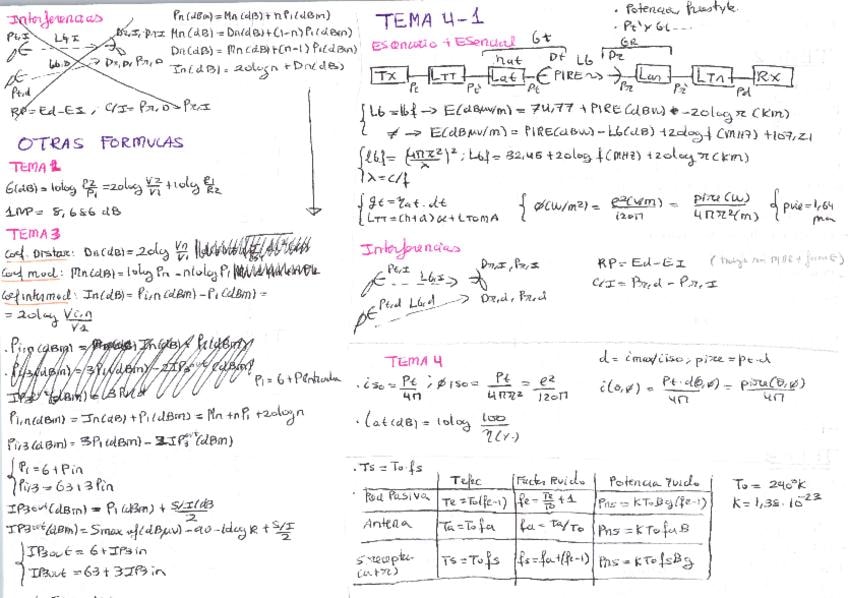 Interferencias
Pt,I
LG,I
Dr,I, Pr,I
LG,D
Dr,D, Pr,D
Pt,d
RP=Ed-EI, C/I=Pr,D-Pr,I
Pn(dBm)=Mn(dB)+nP1(dBm)
Mn(dB)=Dn(dB)+(1-n)P1(dBm)
Dn(dB)=Mn(dB)+(n-1)P1(dBm)
In(dB)=20logn+Dn(dB)
OTRAS FORMULAS
TEMA 2
G(dB)=10log P2/P1=20log V2/V1+10log R1/R2
1NP = 8,686 dB
TEMA 3
Coef. Distor: Dn(dB)=20log Vn/V1
Coef mod: Mn(dB)=10log Pn-n10log P1
Coef intermod: In(dB)=Pi,n(dBm)-P1(dBm)=
=20log Vi,n/V1
P1=G+Pentrada
Pi,n(dBm)=In(dB)+P1(dBm)=Mn+nP1+20logn
Pi,3(dBm)=3P1(dBm)-2IP3out(dBm)
P1=G+Pin
Pi,3=G3+3Pin
IP3out(dBm)=P1(dBm)+S/I(dB)/2
IP3out=G+IP3in
IP3out=G3+3IP3in
TEMA 4-1
· Potencia
· Pt' y GL...
Escenario+Esencial
Gt
nat
Dt
LG
Dr
GR
TX
LTT
Lat
PIRE
Lar
LTr
RX
Pt
Pt'
Pr
Pr'
Pd
LG=Lbf → E(dBμv/m)=74,77+PIRE(dBW)-20logr(KM)
≠ → E(dBμv/m)=PIRE(dBW)-LG(dB)+20logf(MHZ)+107,21
lbf=(4πr/λ)²; LGf=32,45+20logf(MHZ)+20logr(KM)
λ=c/f
gt=ηat.dt
LTT=(h+d)α+LTOMA
Ø(W/m²)=e²(V/m)/120π=pire(W)/4πr²(m)
pire=1,64
Interferencias
Pt,I
LG,I
Dr,I, Pr,I
Pt,d
LG,d
Dr,d, Pr,d
RP=Ed-EI
C/I=Pr,d-Pr,I
TEMA 4
d=imax/iiso; pire=pt·d
·iiso=Pt/4π; Øiso=Pt/4πr²=e²/120π
i(θ,ø)=Pt·d(θ,ø)/4π=pire(θ,ø)/4π
·Lat(dB)=10log 100/η(%)
·Ts=To·fs
Tefec
Factor Ruido
Potencia Ruido
Red Pasiva
Te=To(fe-1)
fe=Te/To+1
Pns=KToBg(fe-1)
Antena
Ta=Tofa
fa=Ta/To
Pns=KTofaB
S recepto
Ts=Tofs
fs=fa+(fe-1)
Pns=KTofsBg
To=290°K
K=1,38·10-23